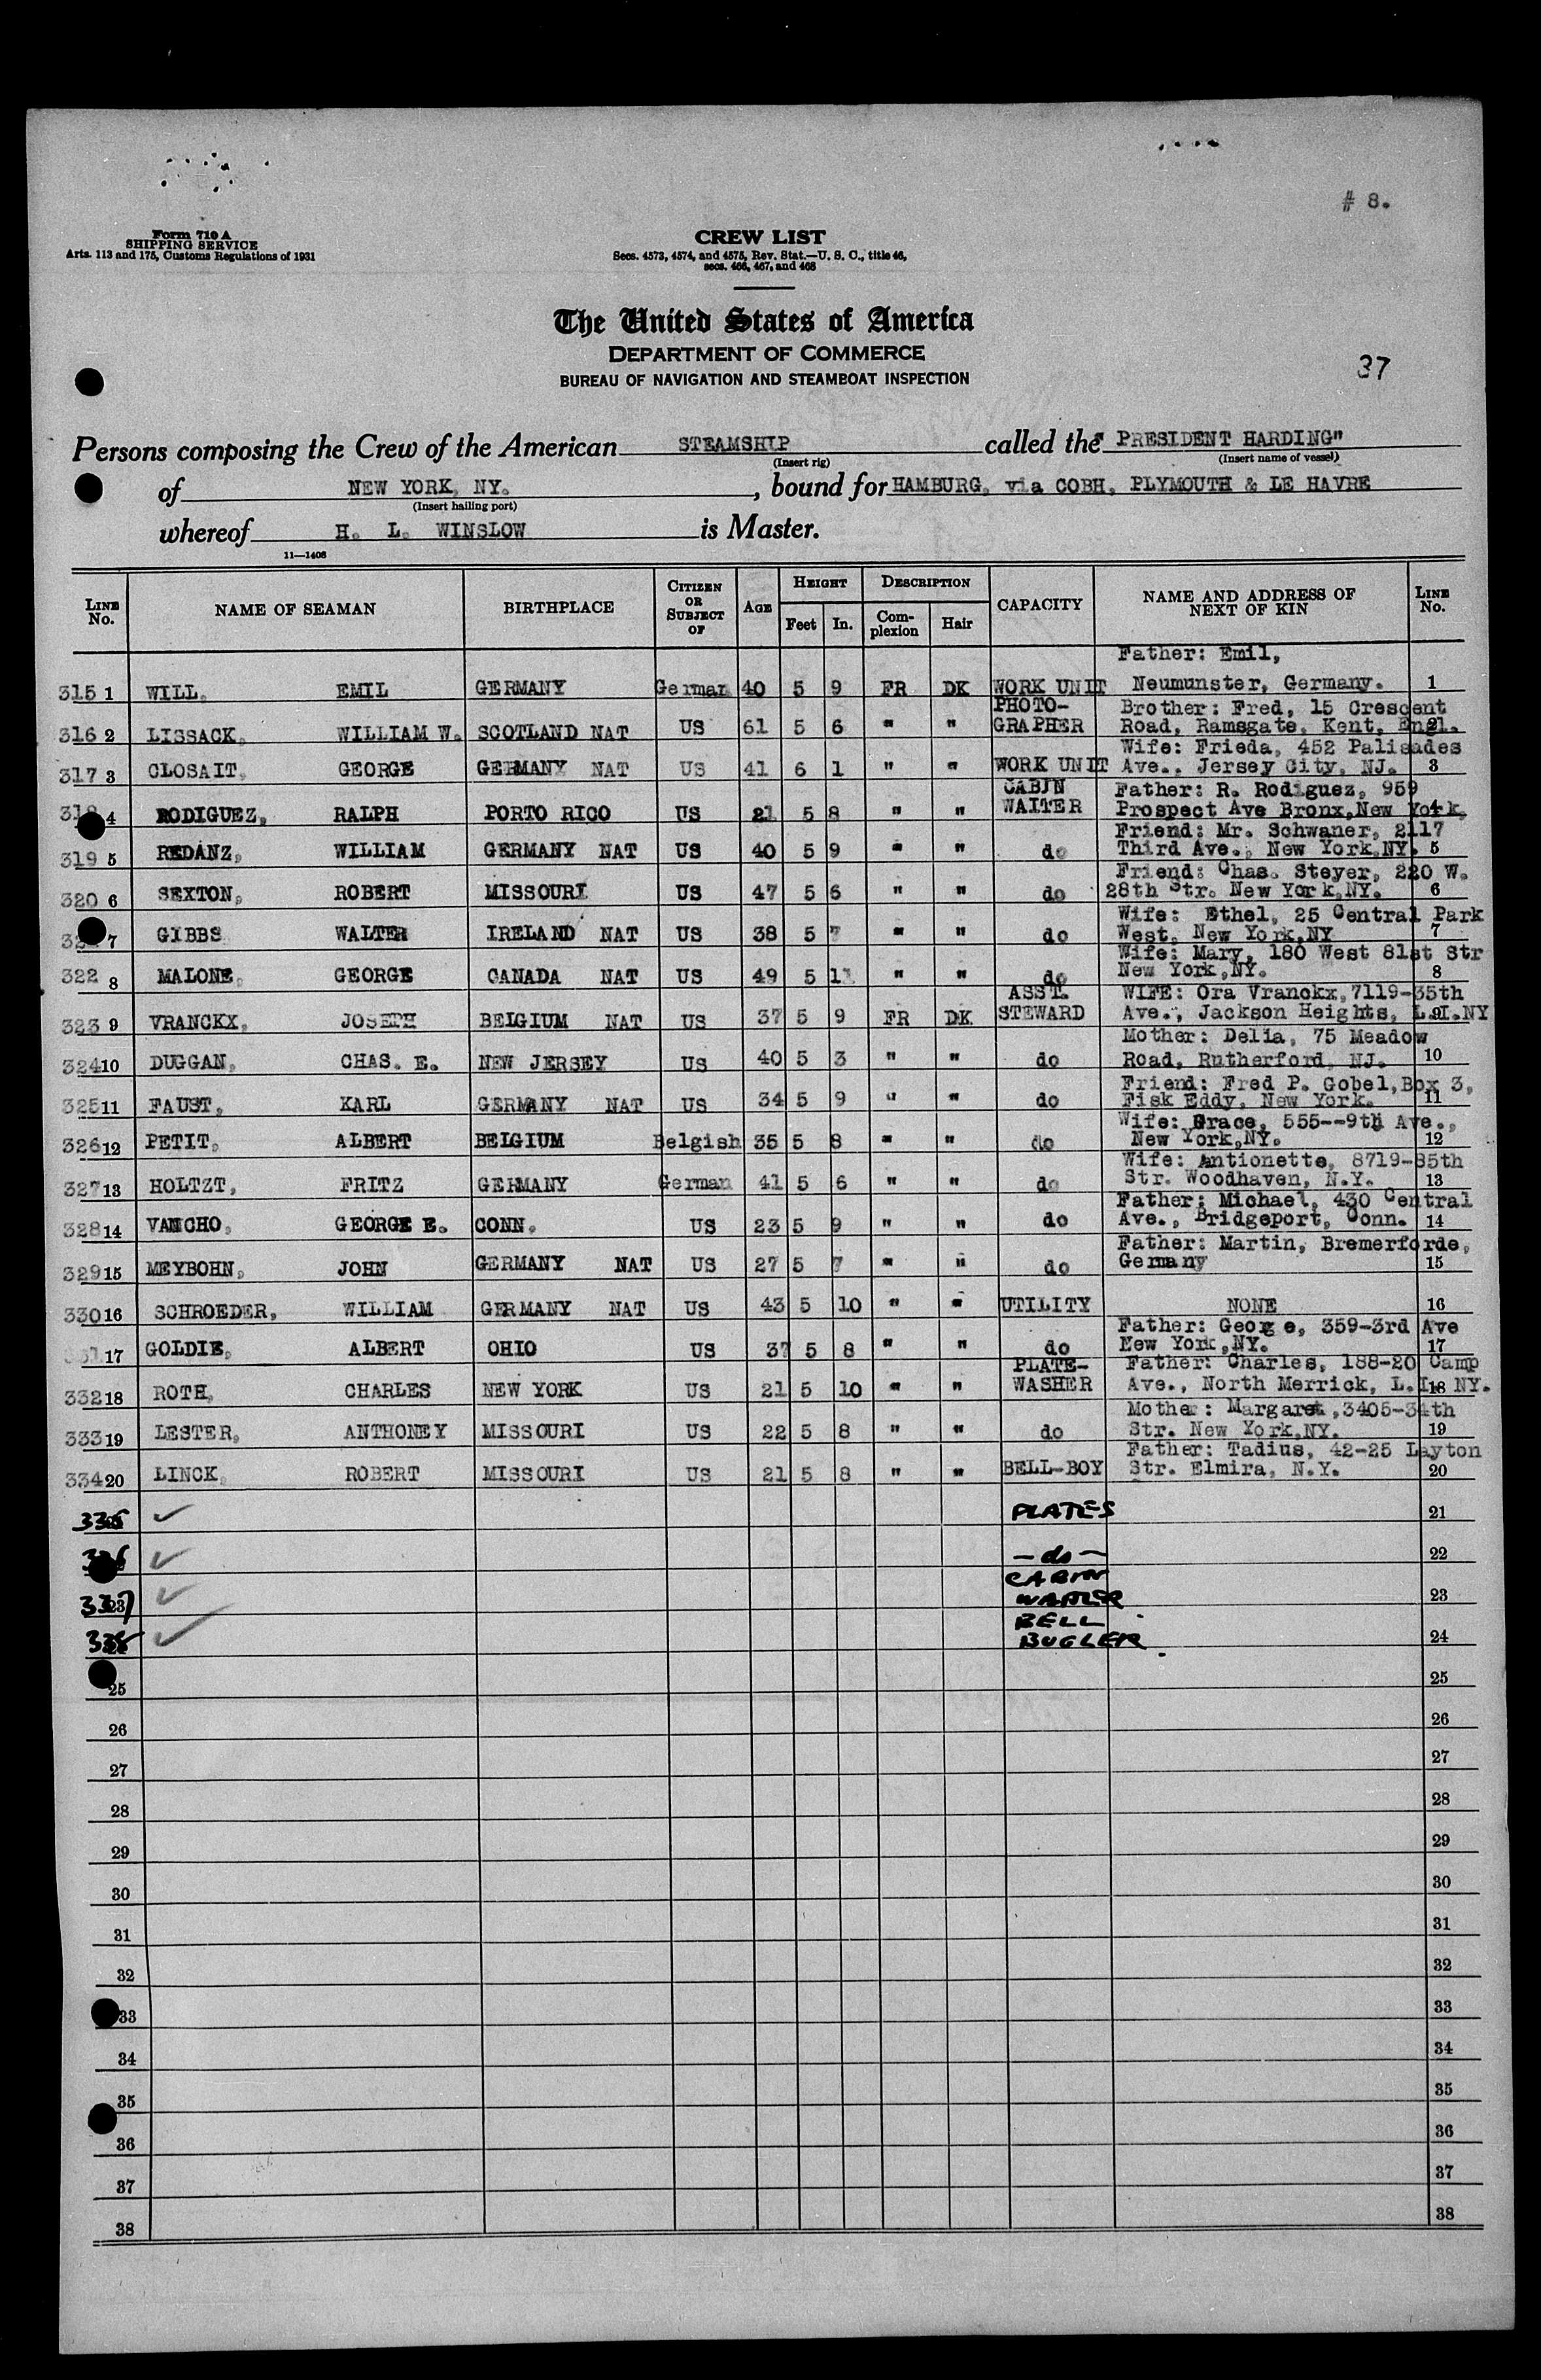 # 8.
Form 710 A
SHIPPING SERVICE
Arts. 113 and 175, Customs Regulations of 1931
CREW LIST
Secs. 4573, 4574, and 4575, Rev. Stat.—U. S. C., title 46,
secs. 466, 467, and 468
The United States of America
DEPARTMENT OF COMMERCE
BUREAU OF NAVIGATION AND STEAMBOAT INSPECTION
37
Persons composing the Crew of the American STEAMSHIP called the "PRESIDENT HARDING"
(Insert rig) (Insert name of vessel)
of NEW YORK, NY. , bound for HAMBURG, via COBH, PLYMOUTH & LE HAVRE
(Insert hailing port)
whereof H. L. WINSLOW is Master.
11—1408
LINE No. NAME OF SEAMAN BIRTHPLACE CITIZEN OR SUBJECT OF AGE HEIGHT Feet In. DESCRIPTION Complexion Hair CAPACITY NAME AND ADDRESS OF NEXT OF KIN LINE No.
Father: Emil,
315 1 WILL, EMIL GERMANY German 40 5 9 FR DK WORK UNIT Neumunster, Germany. 1
PHOTO- Brother: Fred, 15 Crescent
316 2 LISSACK, WILLIAM W. SCOTLAND NAT US 61 5 6 " " GRAPHER Road, Ramsgate, Kent, Engl. 2
Wife: Frieda, 452 Palisades
317 3 CLOSAIT, GEORGE GERMANY NAT US 41 6 1 " " WORK UNIT Ave., Jersey City, NJ. 3
CABIN Father: R. Rodiguez, 959
318 4 RODIGUEZ, RALPH PORTO RICO US 21 5 8 " " WAITER Prospect Ave Bronx,New York, 4
Friend: Mr. Schwaner, 2117
319 5 REDANZ, WILLIAM GERMANY NAT US 40 5 9 " " do Third Ave., New York,NY. 5
Friend: Chas. Steyer, 220 W.
320 6 SEXTON, ROBERT MISSOURI US 47 5 6 " " do 28th Str. New York,NY. 6
Wife: Ethel, 25 Central Park
7 GIBBS WALTER IRELAND NAT US 38 5 7 " " do West, New York,NY 7
Wife: Mary, 180 West 81st Str
322 8 MALONE, GEORGE CANADA NAT US 49 5 11 " " do New York,NY. 8
ASST. WIFE: Ora Vranckx,7119-35th
323 9 VRANCKX, JOSEPH BELGIUM NAT US 37 5 9 FR DK STEWARD Ave., Jackson Heights, L.I.NY 9
Mother: Delia, 75 Meadow
324 10 DUGGAN, CHAS. E. NEW JERSEY US 40 5 3 " " do Road, Rutherford, NJ. 10
Friend: Fred P. Gobel,Box 3,
325 11 FAUST, KARL GERMANY NAT US 34 5 9 " " do Fisk Eddy, New York. 11
Wife: Grace, 555--9th Ave.,
326 12 PETIT, ALBERT BELGIUM Belgish 35 5 8 " " do New York,NY. 12
Wife: Antionette, 8719-85th
327 13 HOLTZT, FRITZ GERMANY German 41 5 6 " " do Str. Woodhaven, N.Y. 13
Father: Michael, 430 Central
328 14 VANCHO, GEORGE E. CONN. US 23 5 9 " " do Ave., Bridgeport, Conn. 14
Father: Martin, Bremerforde,
329 15 MEYBOHN, JOHN GERMANY NAT US 27 5 7 " " do Gemany 15
330 16 SCHROEDER, WILLIAM GERMANY NAT US 43 5 10 " " UTILITY NONE 16
Father: George, 359-3rd Ave
331 17 GOLDIE, ALBERT OHIO US 37 5 8 " " do New York,NY. 17
PLATE- Father: Charles, 188-20 Camp
332 18 ROTH, CHARLES NEW YORK US 21 5 10 " " WASHER Ave., North Merrick, L.I. NY. 18
Mother: Margaret,3405-34th
333 19 LESTER, ANTHONEY MISSOURI US 22 5 8 " " do Str. New York,NY. 19
Father: Tadius, 42-25 Layton
334 20 LINCK, ROBERT MISSOURI US 21 5 8 " " BELL-BOY Str. Elmira, N.Y. 20
335 ✓ PLATES 21
336 ✓ —do— 22
CABIN
337 23 ✓ WAITER 23
BELL
338 ✓ BUGLER 24
25 25
26 26
27 27
28 28
29 29
30 30
31 31
32 32
33 33
34 34
35 35
36 36
37 37
38 38